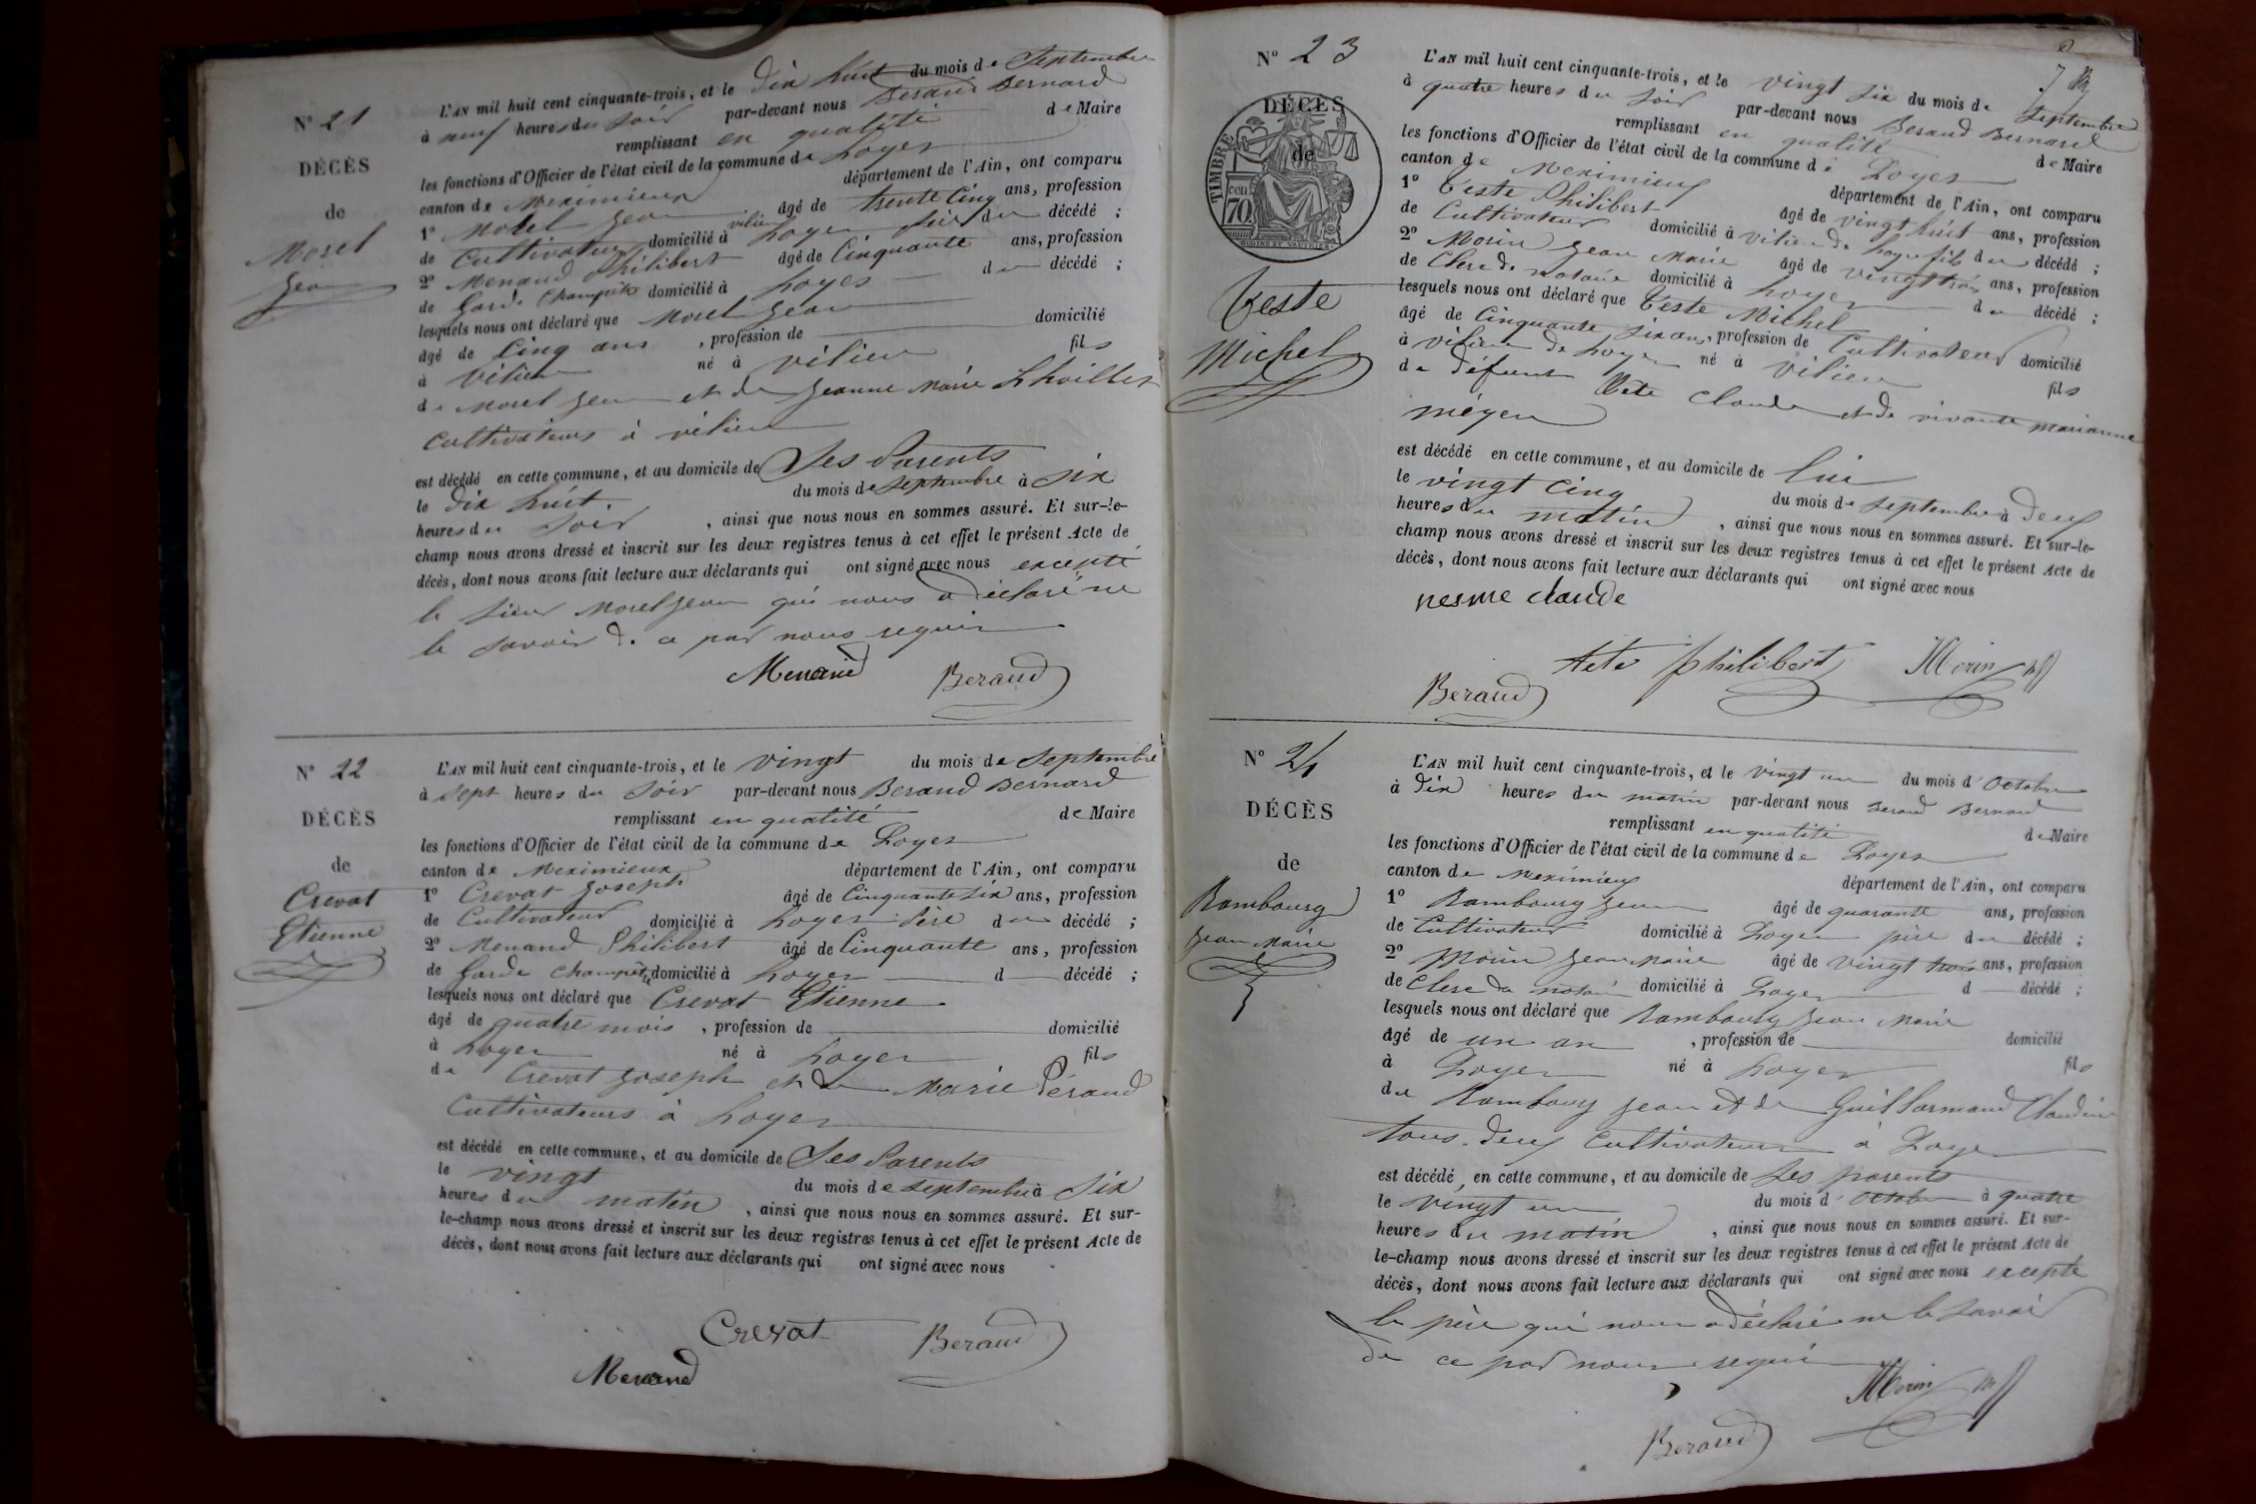 N° 21
DÉCÈS
de
Morel
Jean
L'AN mil huit cent cinquante-trois, et le dix huit du mois de Septembre
à neuf heures du soir par-devant nous Beraud Bernard
remplissant en qualité de Maire
les fonctions d'Officier de l'état civil de la commune de Loyes
canton de Meximieux département de l'Ain, ont comparu
1° Morel Jean âgé de trente cinq ans, profession
de Cultivateur domicilié à vilieu Loyes père du décédé ;
2° Menand Philibert âgé de Cinquante ans, profession
de Garde Champêtre domicilié à Loyes d décédé ;
lesquels nous ont déclaré que Morel Jean
âgé de Cinq ans , profession de domicilié
à vilieu né à vilieu fils
de Morel Jean et de Jeanne Marie
Cultivateurs à vilieu
est décédé en cette commune, et au domicile de Ses Parents
le dix huit. du mois de Septembre à Six
heures du Soir , ainsi que nous nous en sommes assuré. Et sur-le-
champ nous avons dressé et inscrit sur les deux registres tenus à cet effet le présent Acte de
décès, dont nous avons fait lecture aux déclarants qui ont signé avec nous excepté
le Sieur Morel Jean qui nous a déclaré ne
le savoir de ce par nous requis
Menand Beraud
N° 22
DÉCÈS
de
Crevat
Etienne
L'AN mil huit cent cinquante-trois, et le vingt du mois de Septembre
à sept heures du Soir par-devant nous Beraud Bernard
remplissant en qualité de Maire
les fonctions d'Officier de l'état civil de la commune de Loyes
canton de Meximieux département de l'Ain, ont comparu
1° Crevat Joseph âgé de Cinquante Six ans, profession
de Cultivateur domicilié à Loyes Père du décédé ;
2° Menand Philibert âgé de Cinquante ans, profession
de Garde Champêtre domicilié à Loyes d décédé ;
lesquels nous ont déclaré que Crevat Etienne
âgé de quatre mois , profession de domicilié
à Loyes né à Loyes fils
de Crevat Joseph et de Marie Péraud
Cultivateurs à Loyes
est décédé en cette commune, et au domicile de Ses Parents
le vingt du mois de Septembre à Six
heures du matin , ainsi que nous nous en sommes assuré. Et sur-
le-champ nous avons dressé et inscrit sur les deux registres tenus à cet effet le présent Acte de
décès, dont nous avons fait lecture aux déclarants qui ont signé avec nous
Crevat Beraud
Menand
7
N° 23
DÉCÈS
de
TIMBRE
70
Teste
Michel
L'AN mil huit cent cinquante-trois, et le vingt six du mois de Septembre
à quatre heures du soir par-devant nous Beraud Bernard
remplissant en qualité de Maire
les fonctions d'Officier de l'état civil de la commune de Loyes
canton de Meximieux département de l'Ain, ont comparu
1° Teste Philibert âgé de vingt huit ans, profession
de Cultivateur domicilié à vilieu de Loyes fils du décédé ;
2° Morin Jean Marie âgé de vingt trois ans, profession
de Clerc de notaire domicilié à Loyes du décédé ;
lesquels nous ont déclaré que Teste Michel
âgé de Cinquante Six ans, profession de Cultivateur domicilié
à vilieu de Loyes né à vilieu fils
de défunt Tete Claude et de vivante Marianne
méyen
est décédé en cette commune, et au domicile de lui
le vingt Cinq du mois de Septembre à Deux
heures du matin , ainsi que nous nous en sommes assuré. Et sur-le-
champ nous avons dressé et inscrit sur les deux registres tenus à cet effet le présent Acte de
décès, dont nous avons fait lecture aux déclarants qui ont signé avec nous
nesme claude
tete philibert Morin
Beraud
N° 24
DÉCÈS
de
Rambourg
Jean Marie
L'AN mil huit cent cinquante-trois, et le vingt un du mois d'Octobre
à Dix heures du matin par-devant nous Beraud Bernard
remplissant en qualité de Maire
les fonctions d'Officier de l'état civil de la commune de Loyes
canton de Meximieux département de l'Ain, ont comparu
1° Rambourg Jean âgé de quarante ans, profession
de Cultivateur domicilié à Loyes père du décédé ;
2° Morin Jean Marie âgé de vingt trois ans, profession
de Clerc de notaire domicilié à Loyes d décédé ;
lesquels nous ont déclaré que Rambourg Jean Marie
âgé de un an , profession de domicilié
à Loyes né à Loyes fils
de Rambourg Jean et de Guillarmand Claudine
tous deux Cultivateurs à Loyes
est décédé, en cette commune, et au domicile de Ses parents
le vingt un du mois d'Octobre à quatre
heures du matin , ainsi que nous nous en sommes assuré. Et sur-
le-champ nous avons dressé et inscrit sur les deux registres tenus à cet effet le présent Acte de
décès, dont nous avons fait lecture aux déclarants qui ont signé avec nous excepté
le père qui nous a déclaré ne le savoir
de ce par nous requis
Morin
Beraud